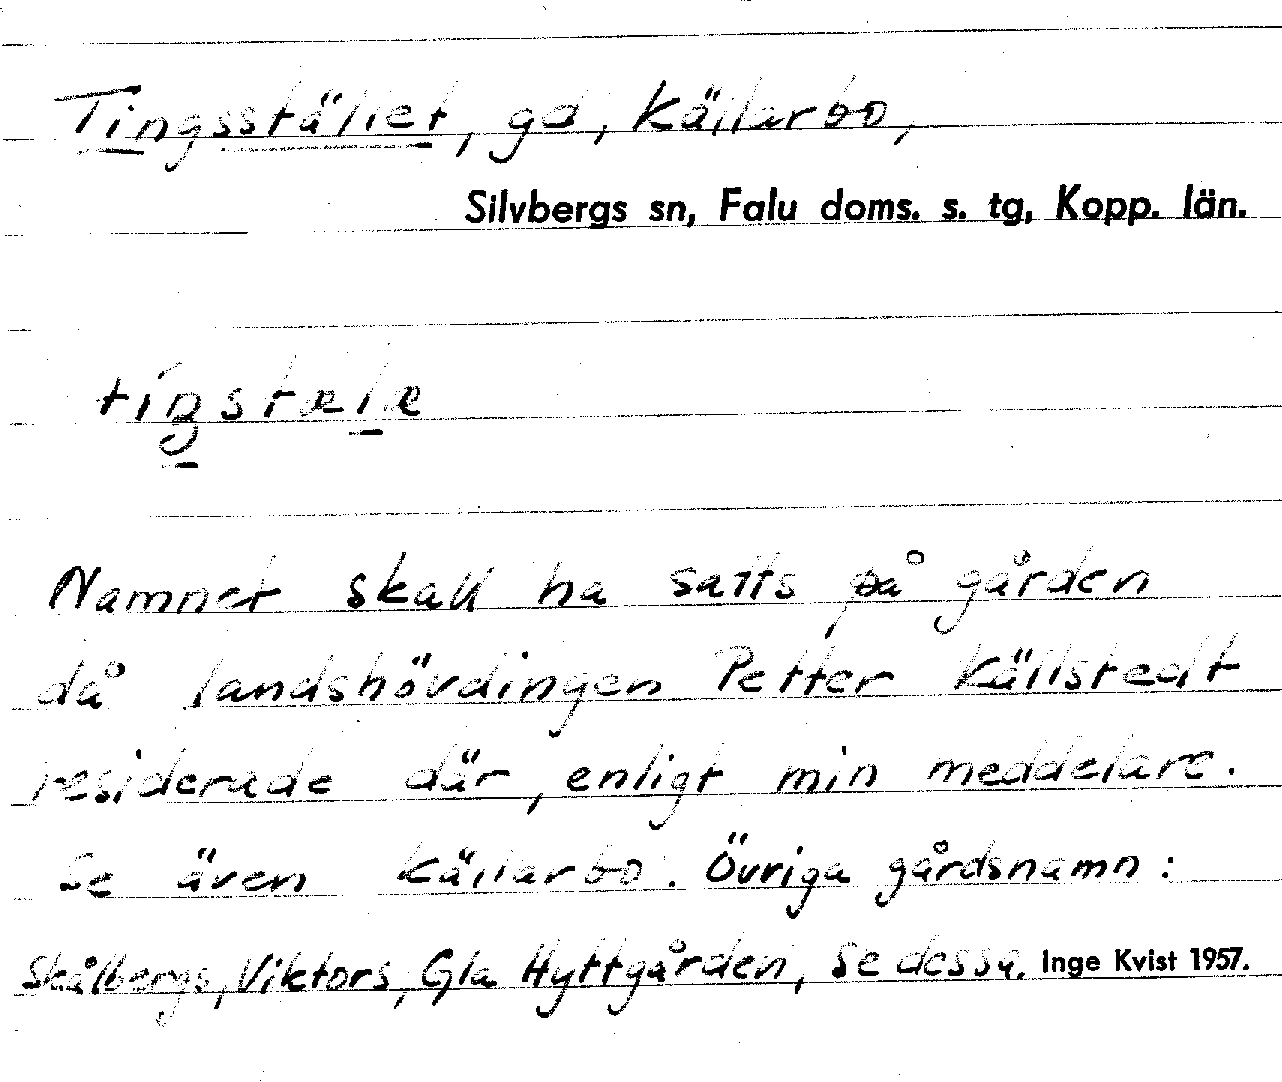 Tingsstället, gd, Källarbo,
Silvbergs sn, Falu doms. s. tg, Kopp. län.
tiŋstæle
Namnet skall ha satts på gården
då landshövdingen Petter Källstedt
residerade där, enligt min meddelare.
Se även Källarbo. Övriga gårdsnamn:
Skålbergs, Viktors, Gla Hyttgården, se dessa. Inge Kvist 1957.